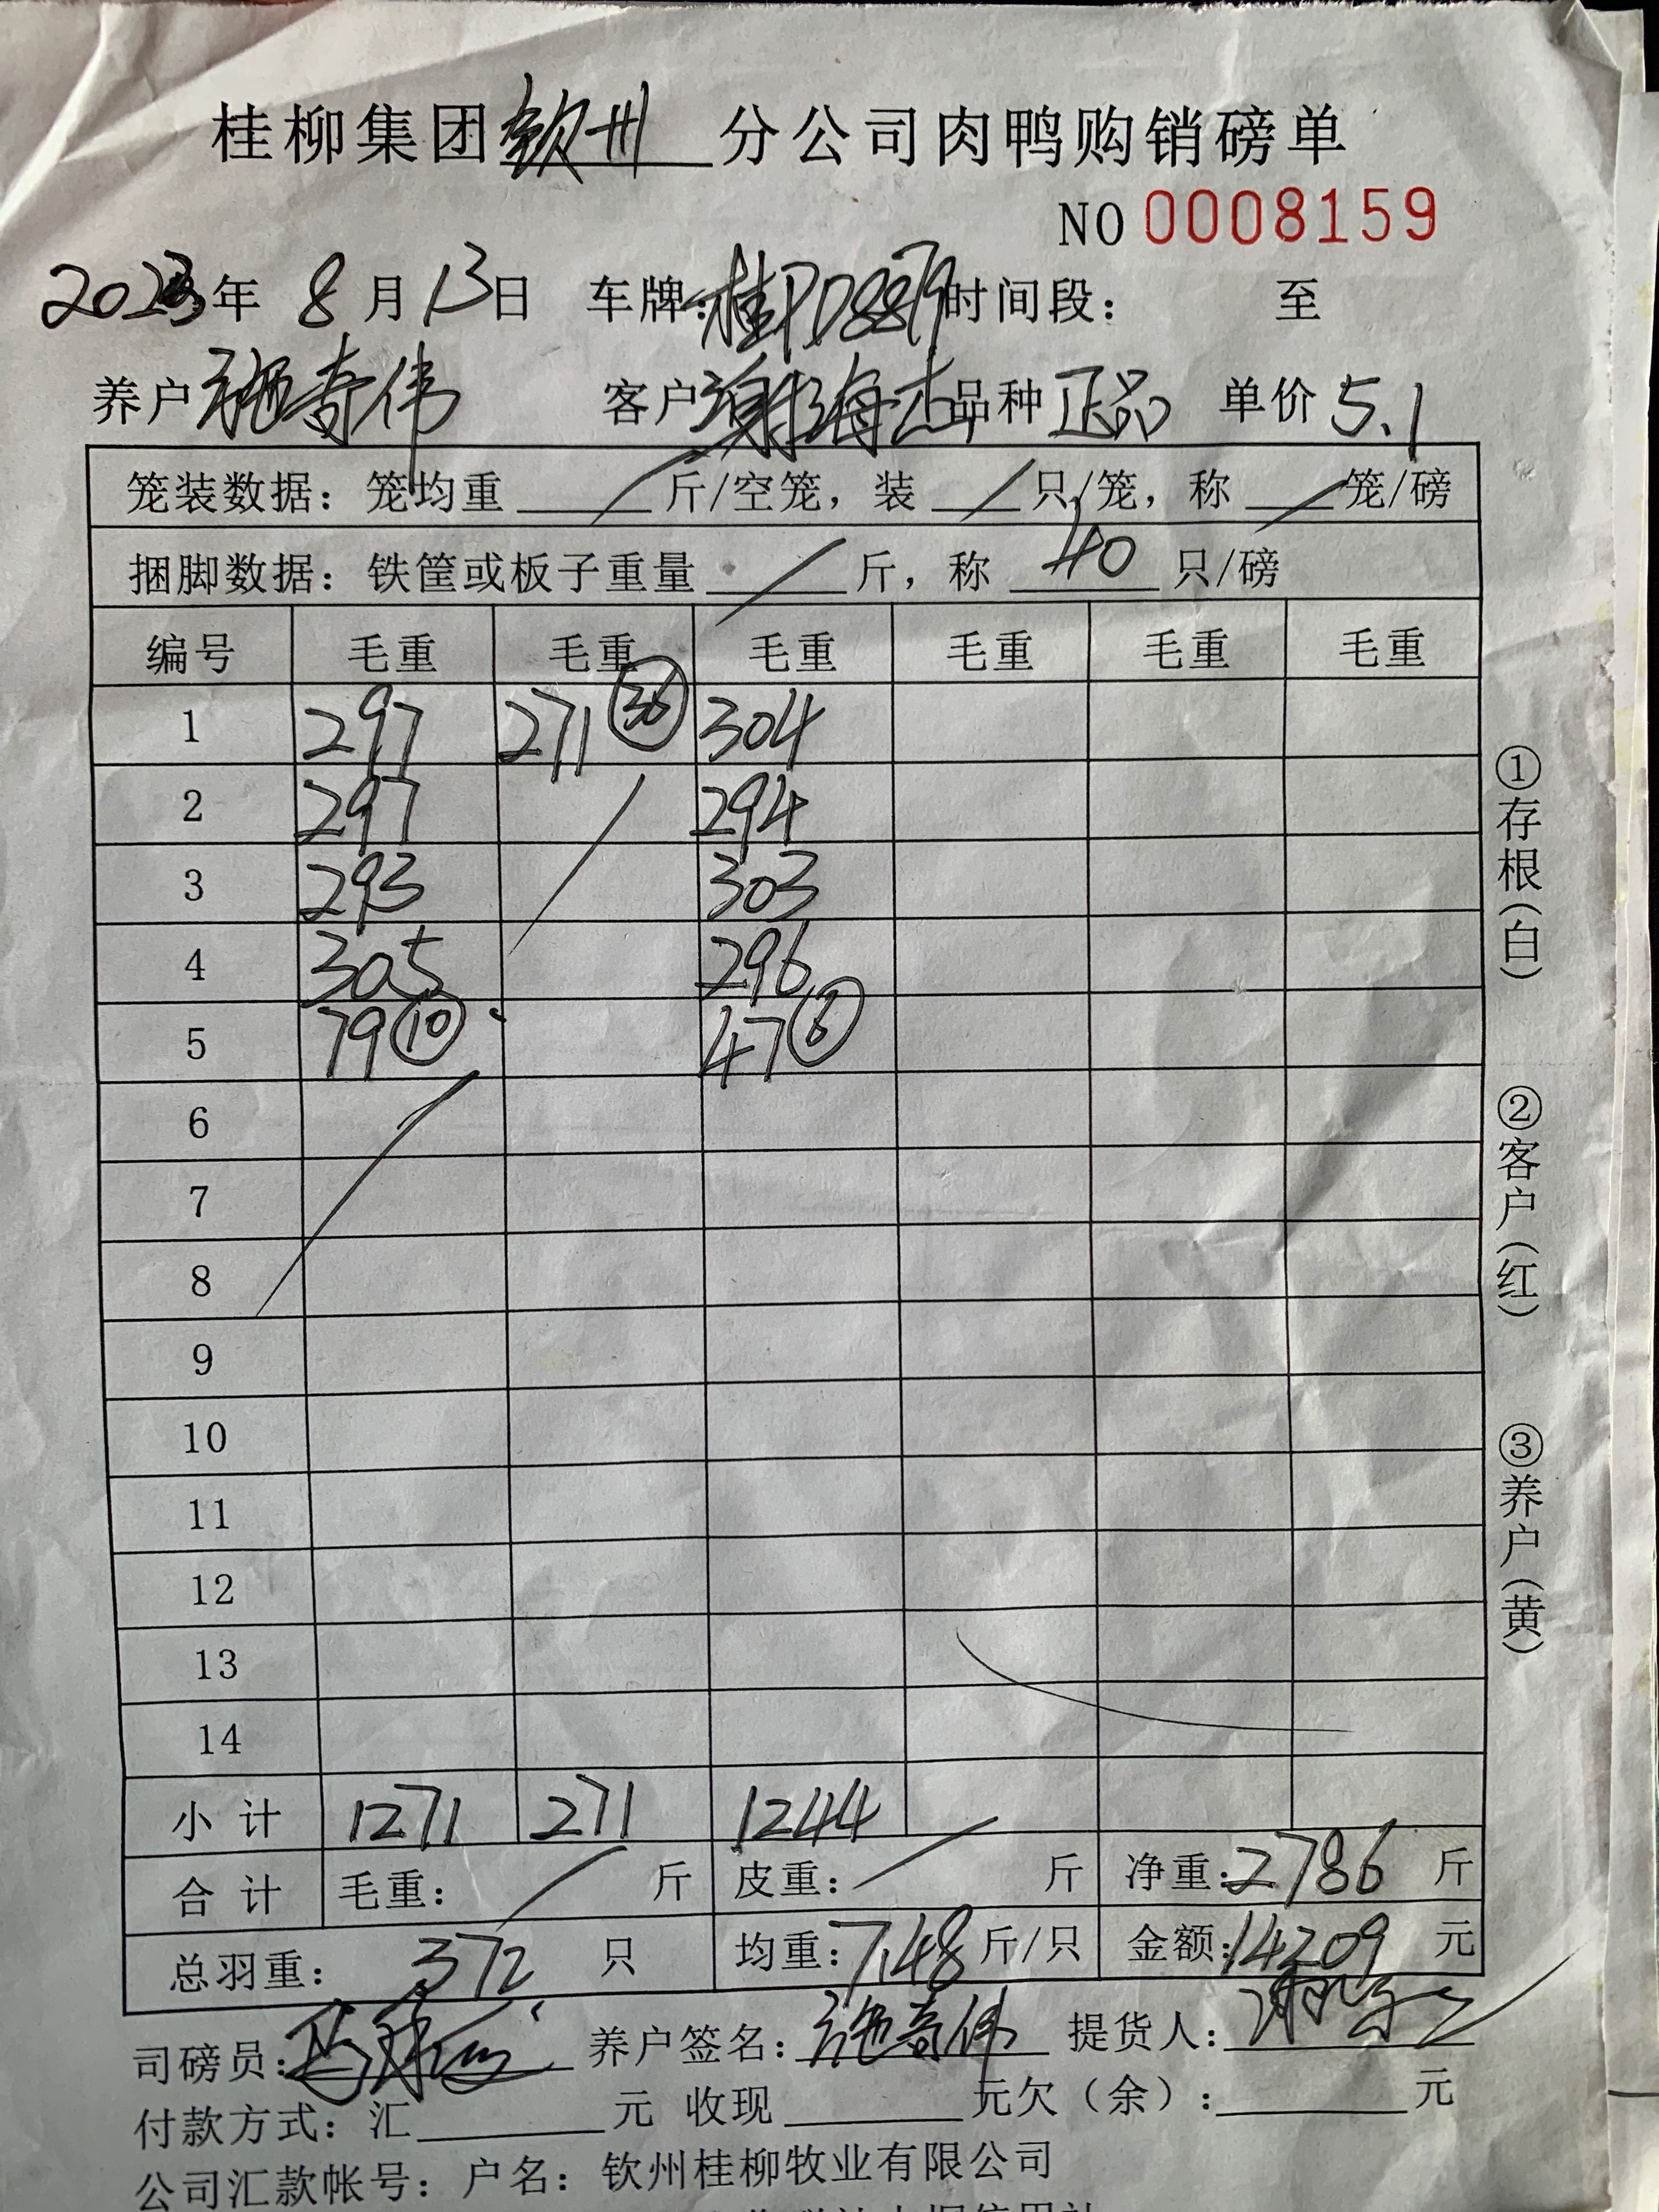 桂柳集团钦州分公司肉鸭购销磅单
NO 0008159
2023年 8月13日 车牌:桂PD8879 时间段: 至
养户 施奇伟 客户 谢海杰 品种 正品 单价 5.1
笼装数据: 笼均重 / 斤/空笼, 装 / 只/笼, 称 / 笼/磅
捆脚数据: 铁筐或板子重量 / 斤, 称 40 只/磅
编号 毛重 毛重 毛重 毛重 毛重 毛重
1 297 271 (36) 304
2 297 294
3 293 303
4 305 296
5 79 (10) 47 (6)
6
7
8
9
10
11
12
13
14
小计 1271 271 1244
合计 毛重: / 斤 皮重: / 斤 净重: 2786 斤
总羽重: 372 只 均重: 7.48 斤/只 金额: 14209 元
司磅员: 养户签名: 施奇伟 提货人:
付款方式: 汇 元 收现 元欠(余): 元
公司汇款帐号: 户名: 钦州桂柳牧业有限公司
①存根(白)
②客户(红)
③养户(黄)